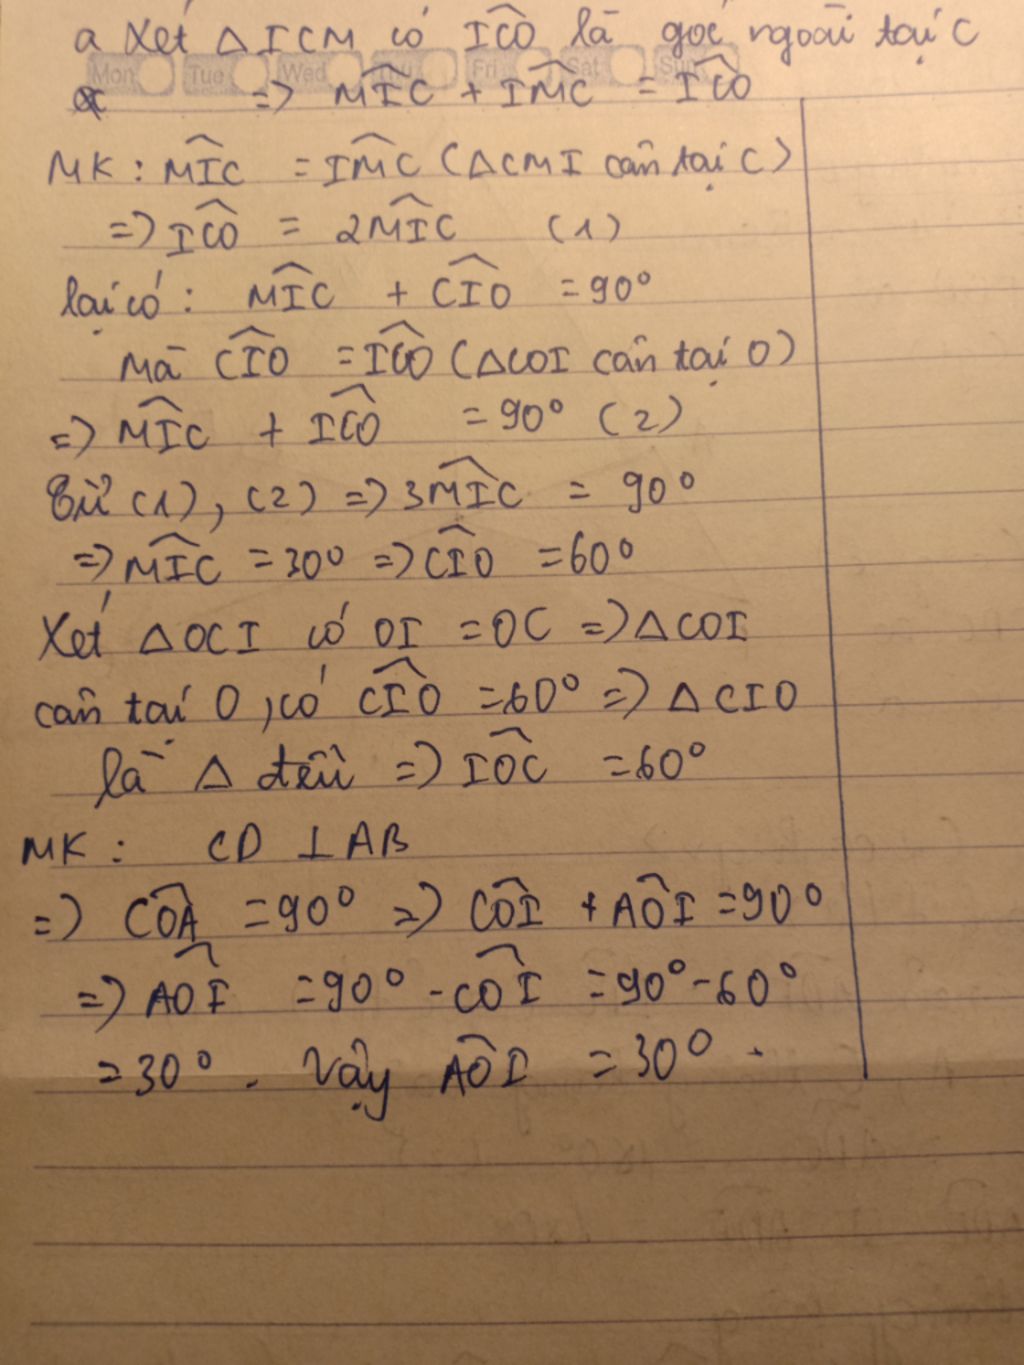 a Xét Δ ICM có \widehat{ICO} là góc ngoài tại C
Mon Tue Wed Thu Fri Sat Sun
=> \widehat{MIC} + \widehat{IMC} = \widehat{ICO}
MK : \widehat{MIC} = \widehat{IMC} (ΔCMI cân tại C)
=> \widehat{ICO} = 2\widehat{MIC} (1)
lại có : \widehat{MIC} + \widehat{CIO} = 90°
Mà \widehat{CIO} = \widehat{ICO} (ΔCOI cân tại O)
=> \widehat{MIC} + \widehat{ICO} = 90° (2)
Từ (1), (2) => 3\widehat{MIC} = 90°
=> \widehat{MIC} = 30° => \widehat{CIO} = 60°
Xét ΔOCI có OI = OC => ΔCOI
cân tại O, có \widehat{CIO} = 60° => ΔCIO
là Δ đều => \widehat{IOC} = 60°
MK : CD ⊥ AB
=> \widehat{COA} = 90° => \widehat{COI} + \widehat{AOI} = 90°
=> \widehat{AOI} = 90° - \widehat{COI} = 90° - 60°
= 30°. Vậy \widehat{AOI} = 30°.